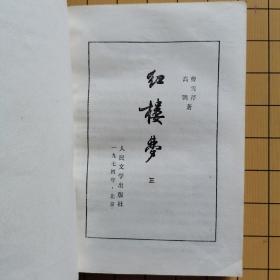 曹雪芹
高鹗著
红楼梦
三
人民文学出版社
一九七四年·北京